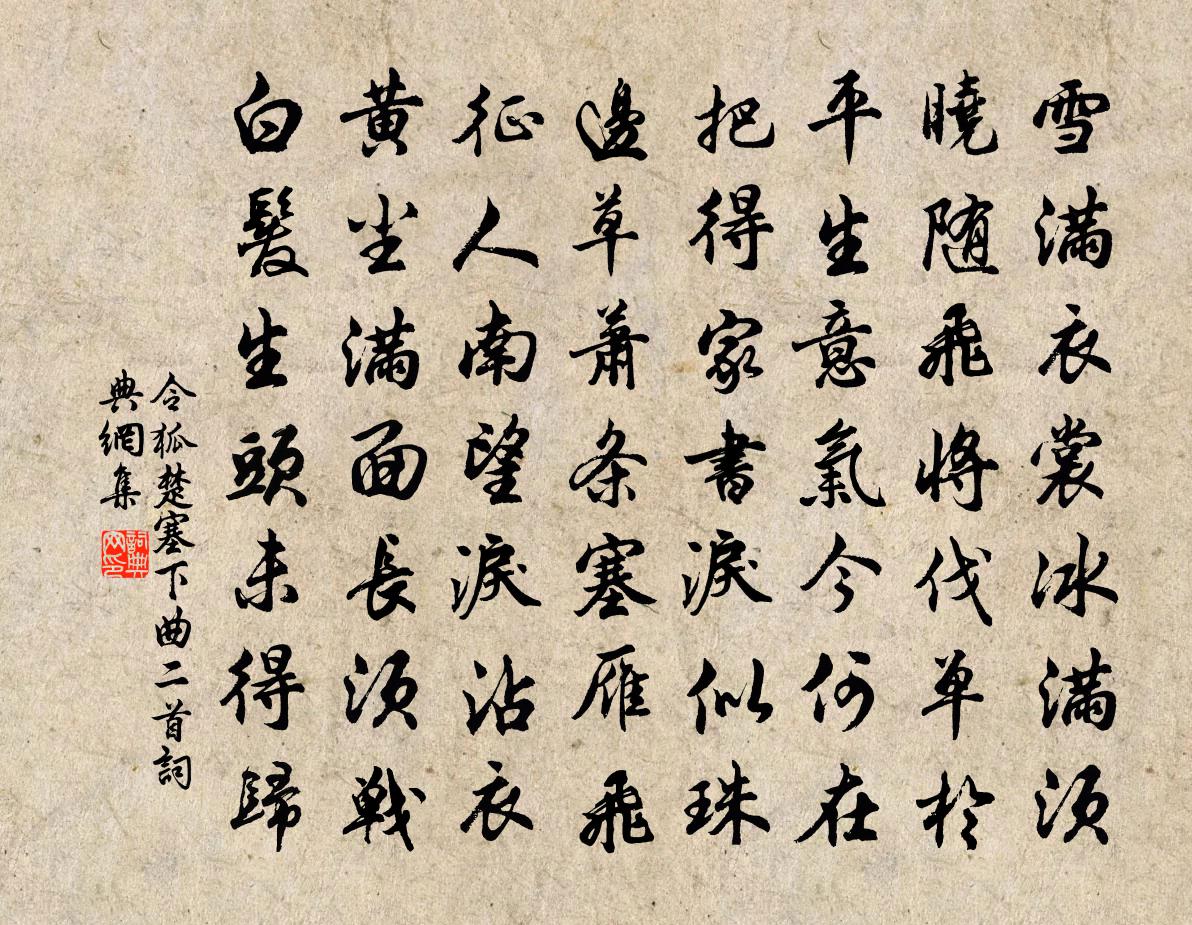 雪滿衣裳冰滿須
曉隨飛將伐單於
平生意氣今何在
把得家書淚似珠
邊草蕭条塞雁飛
征人南望淚沾衣
黄尘滿面長須戰
白髮生頭未得歸
令狐楚塞下曲二首詞
典網集
詞典
网印